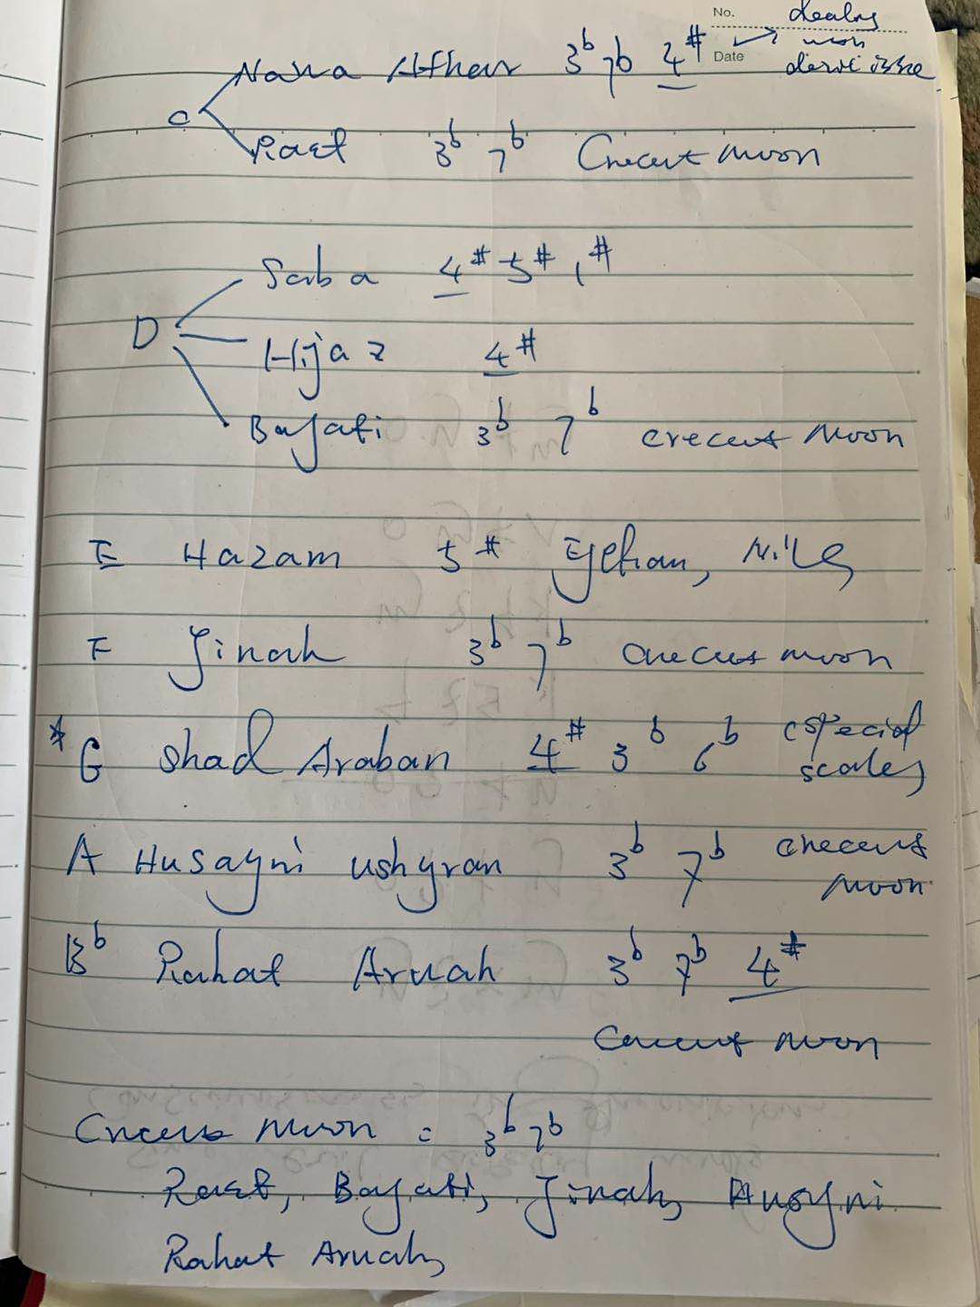 No.
Date
Nawa Athear 3b 7b 4#
C
Rast 3b 7b Crecent Moon
Saba 4# 5# 1#
D
Hijaz 4#
Bayati 3b 7b crecent Moon
E Hazam 5#
F Jinah 3b 7b crecent moon
* G Shad Araban 4# 3b 6b special
scales
A Husayni ushyran 3b 7b crecent
moon
Bb Rahat Aruah 3b 7b 4#
Crecent moon
Crecent Moon = 3b 7b
Rast, Bayati, Jinah,
Rahat Aruah,